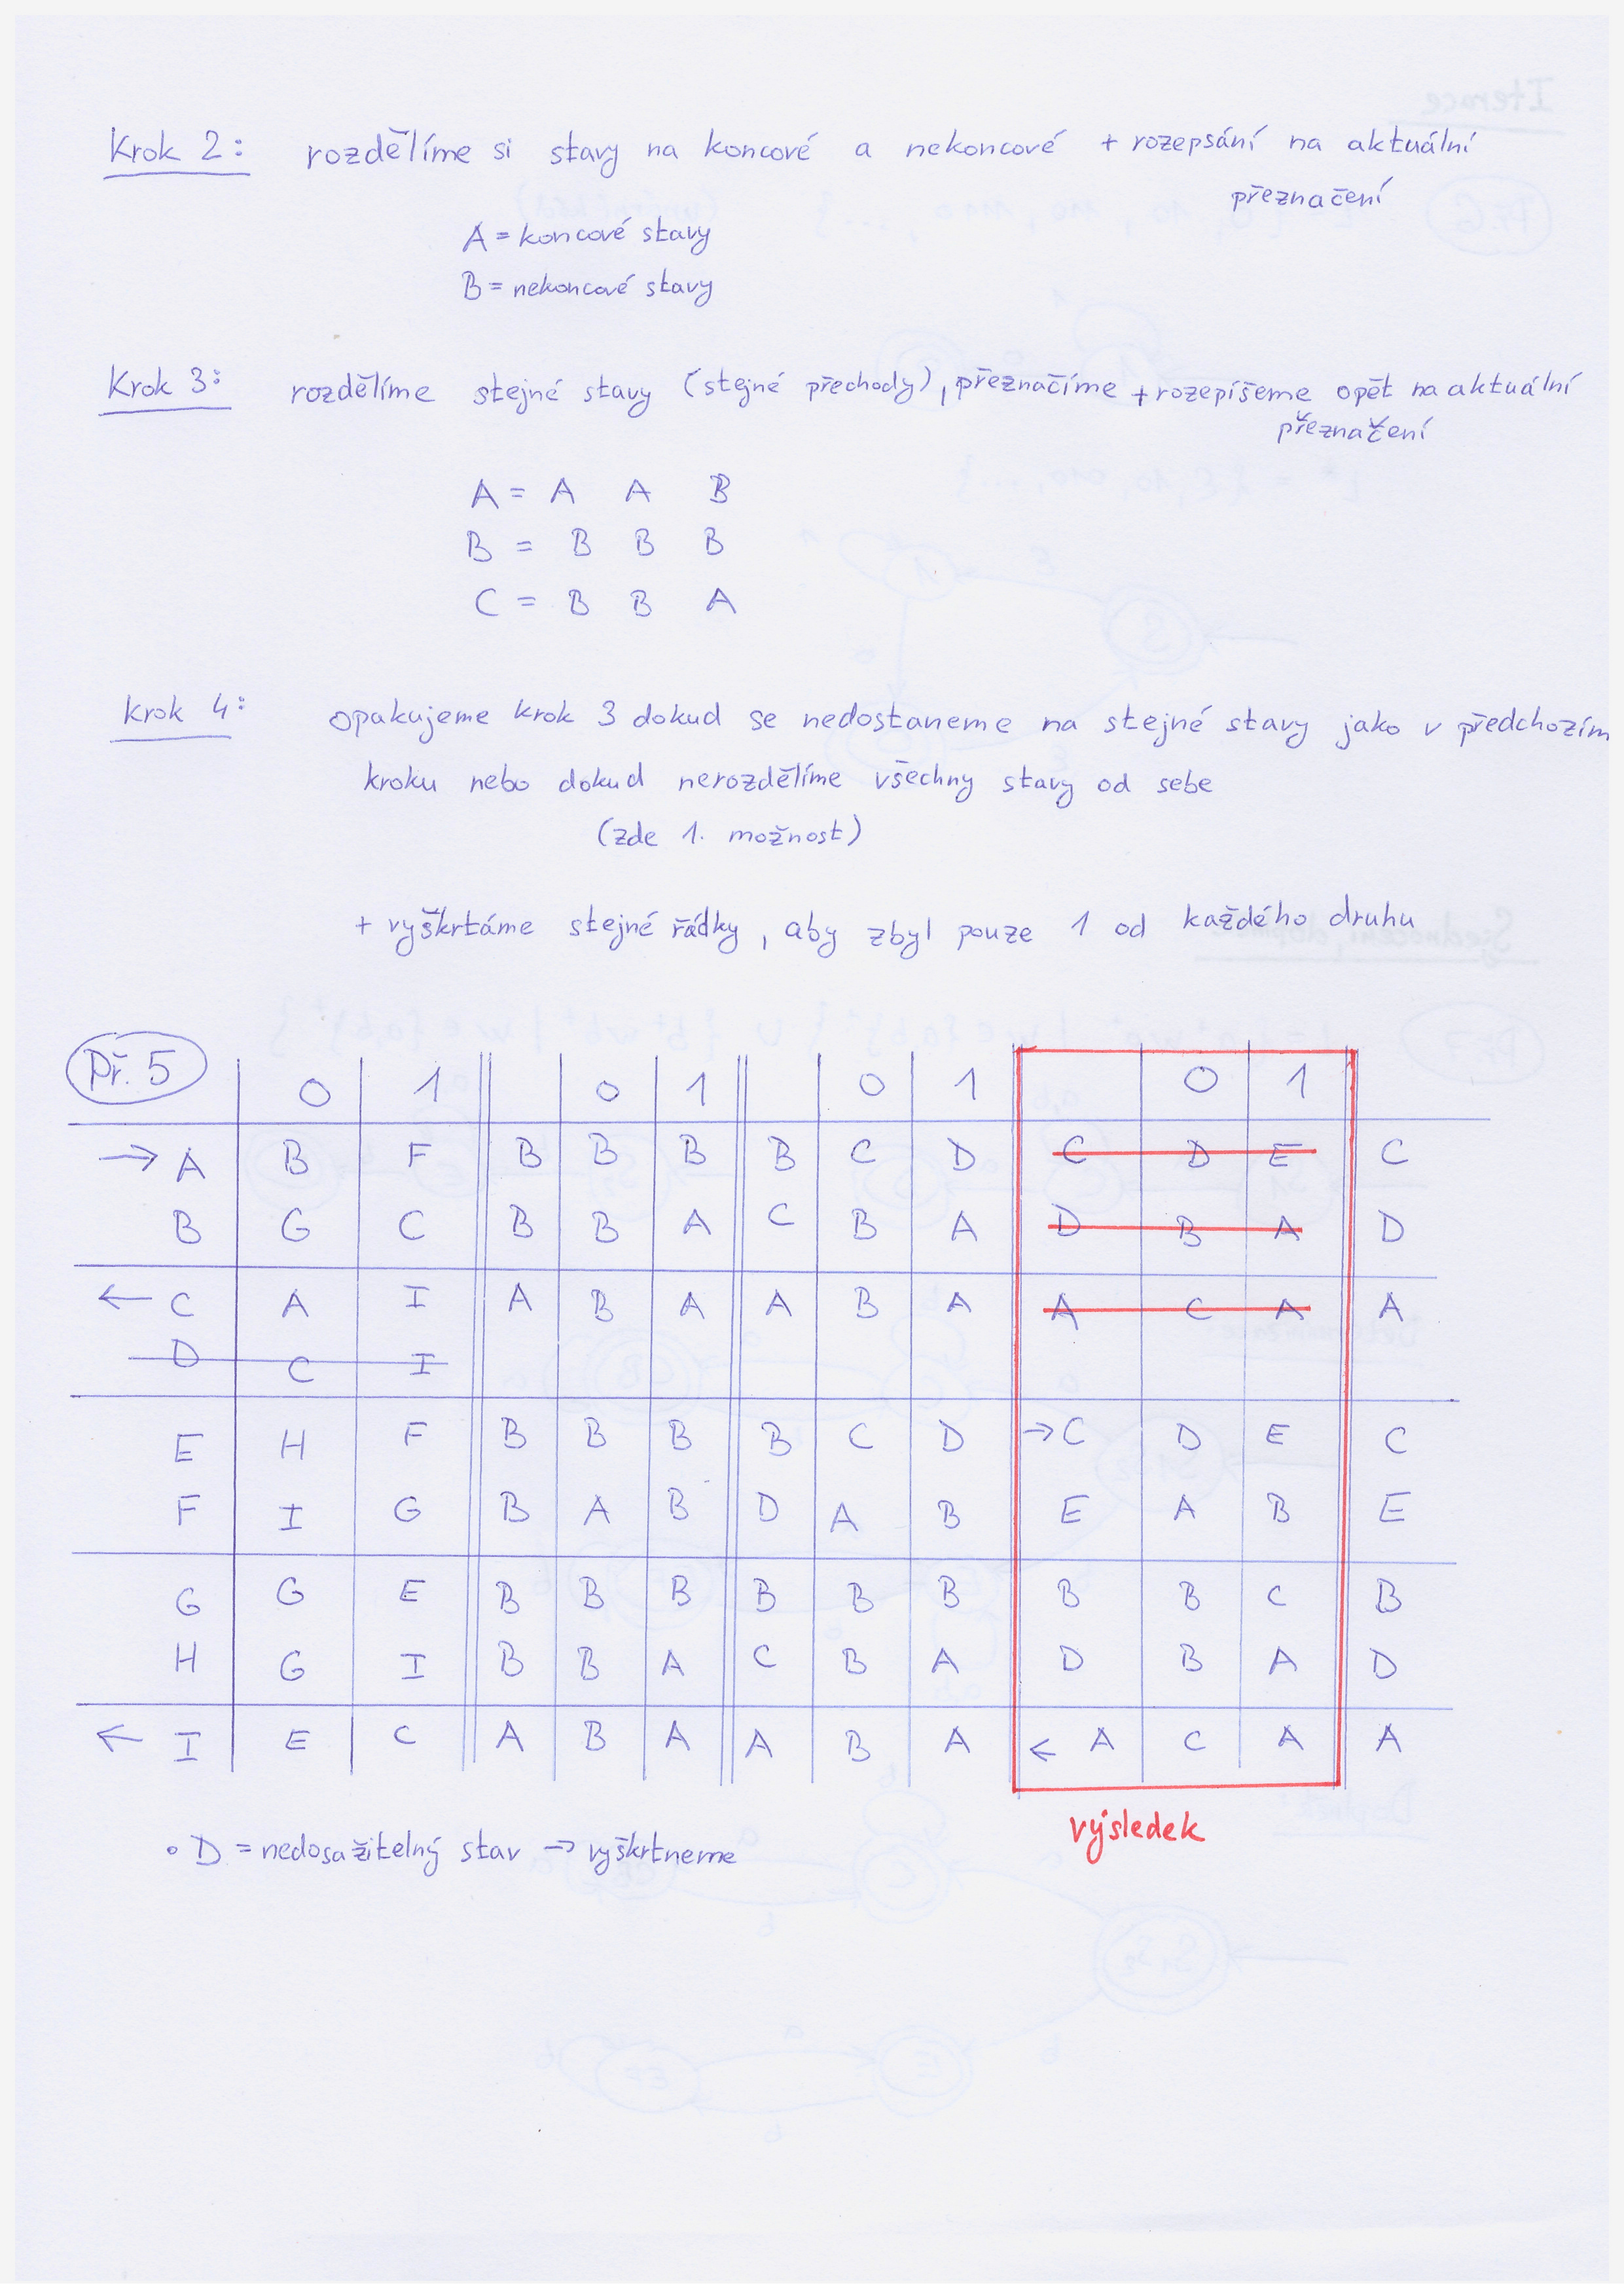 Krok 2: rozdělíme si stavy na koncové a nekoncové + rozepsání na aktuální
přeznačení
A = koncové stavy
B = nekoncové stavy
Krok 3: rozdělíme stejné stavy (stejné přechody), přeznačíme + rozepíšeme opět na aktuální
přeznačení
A = A A B
B = B B B
C = B B A
Krok 4: opakujeme krok 3 dokud se nedostaneme na stejné stavy jako v předchozím
kroku nebo dokud nerozdělíme všechny stavy od sebe
(zde 1. možnost)
+ vyškrtáme stejné řádky, aby zbyl pouze 1 od každého druhu
Př. 5 0 1 0 1 0 1 0 1
→ A B F B B B B C D C D E C
B G C B B A C B A D B A D
← C A I A B A A B A A C A A
D C I
E H F B B B B C D → C D E C
F I G B A B D A B E A B E
G G E B B B B B B B B C B
H G I B B A C B A D B A D
← I E C A B A A B A ← A C A A
• D = nedosažitelný stav → vyškrtneme
výsledek